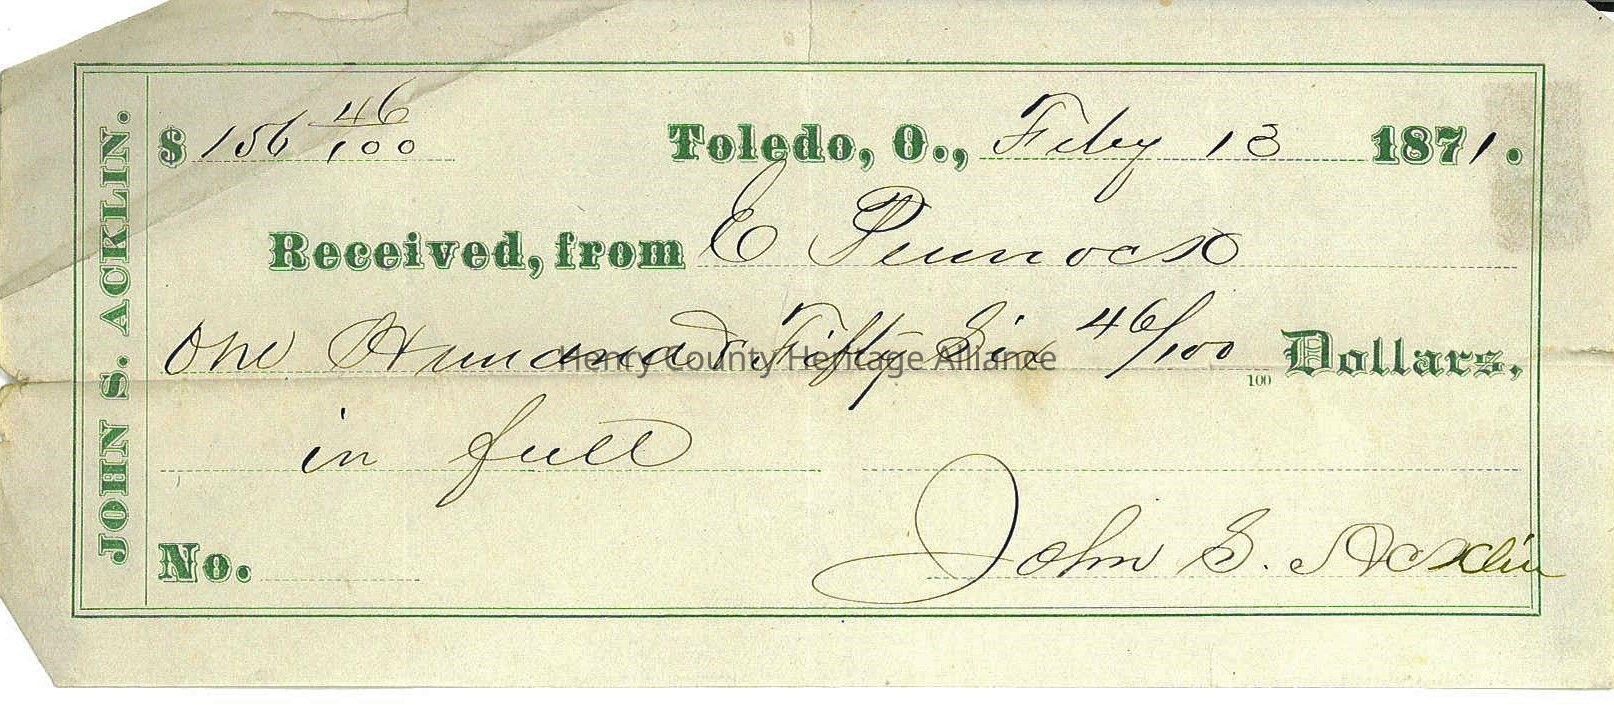 JOHN S. ACKLIN.
$ 156 46/100 Toledo, O., Feby 13 1871.
Received, from E Pennock
One Hundred & Fifty Six 46/100 100 Dollars,
Henry County Heritage Alliance
in full
No. John S. Acklin